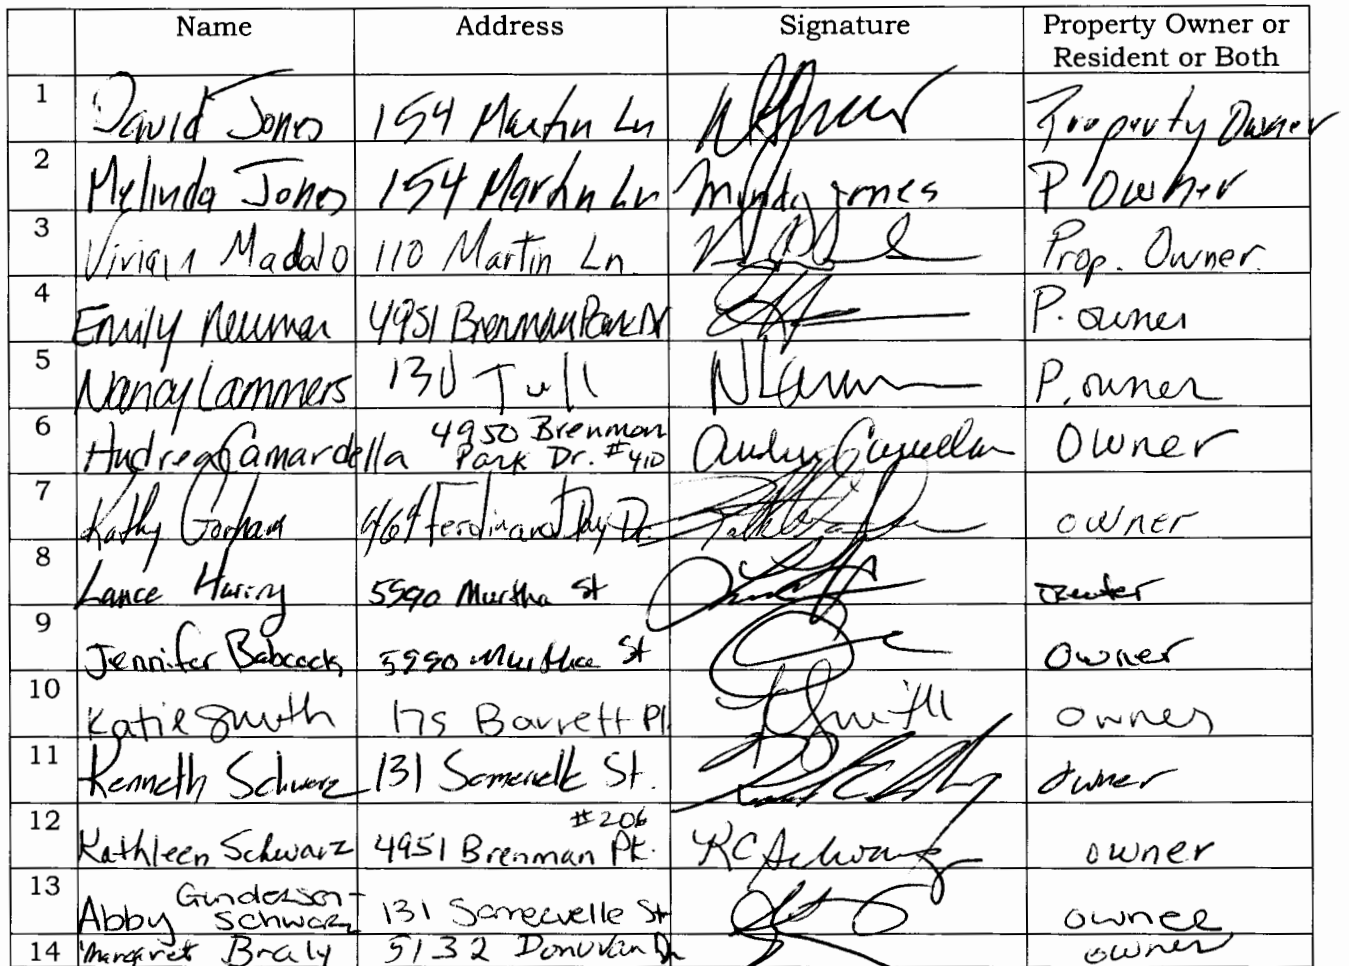 Name Address Signature Property Owner or
Resident or Both
1 David Jones 154 Martin Ln Property Owner
2 Melinda Jones 154 Martin Ln Mindy Jones P Owner
3 Vivian Madalo 110 Martin Ln Prop. Owner.
4 Emily Neuman 4951 Brenman Park Dr P. owner
5 Nancy Lammers 130 Tull P. owner
6 Audrea Camardella 4950 Brenman
Park Dr. #410 Owner
7 Kathy Gorham 464 Ferdinand Day Dr owner
8 Lance 5590 Murtha St
9 Jennifer Babcock 5990 Murtha St Owner
10 Katie Smith 175 Barrett Pl Smith owner
11 Kenneth Schwarz 131 Somervelle St. owner
#206
12 Kathleen Schwarz 4951 Brenman Pk. KC Schwarz owner
Gunderson-
13 Abby Schwarz 131 Somervelle St owner
14 Margaret Braly 5132 Donovan Dr owner